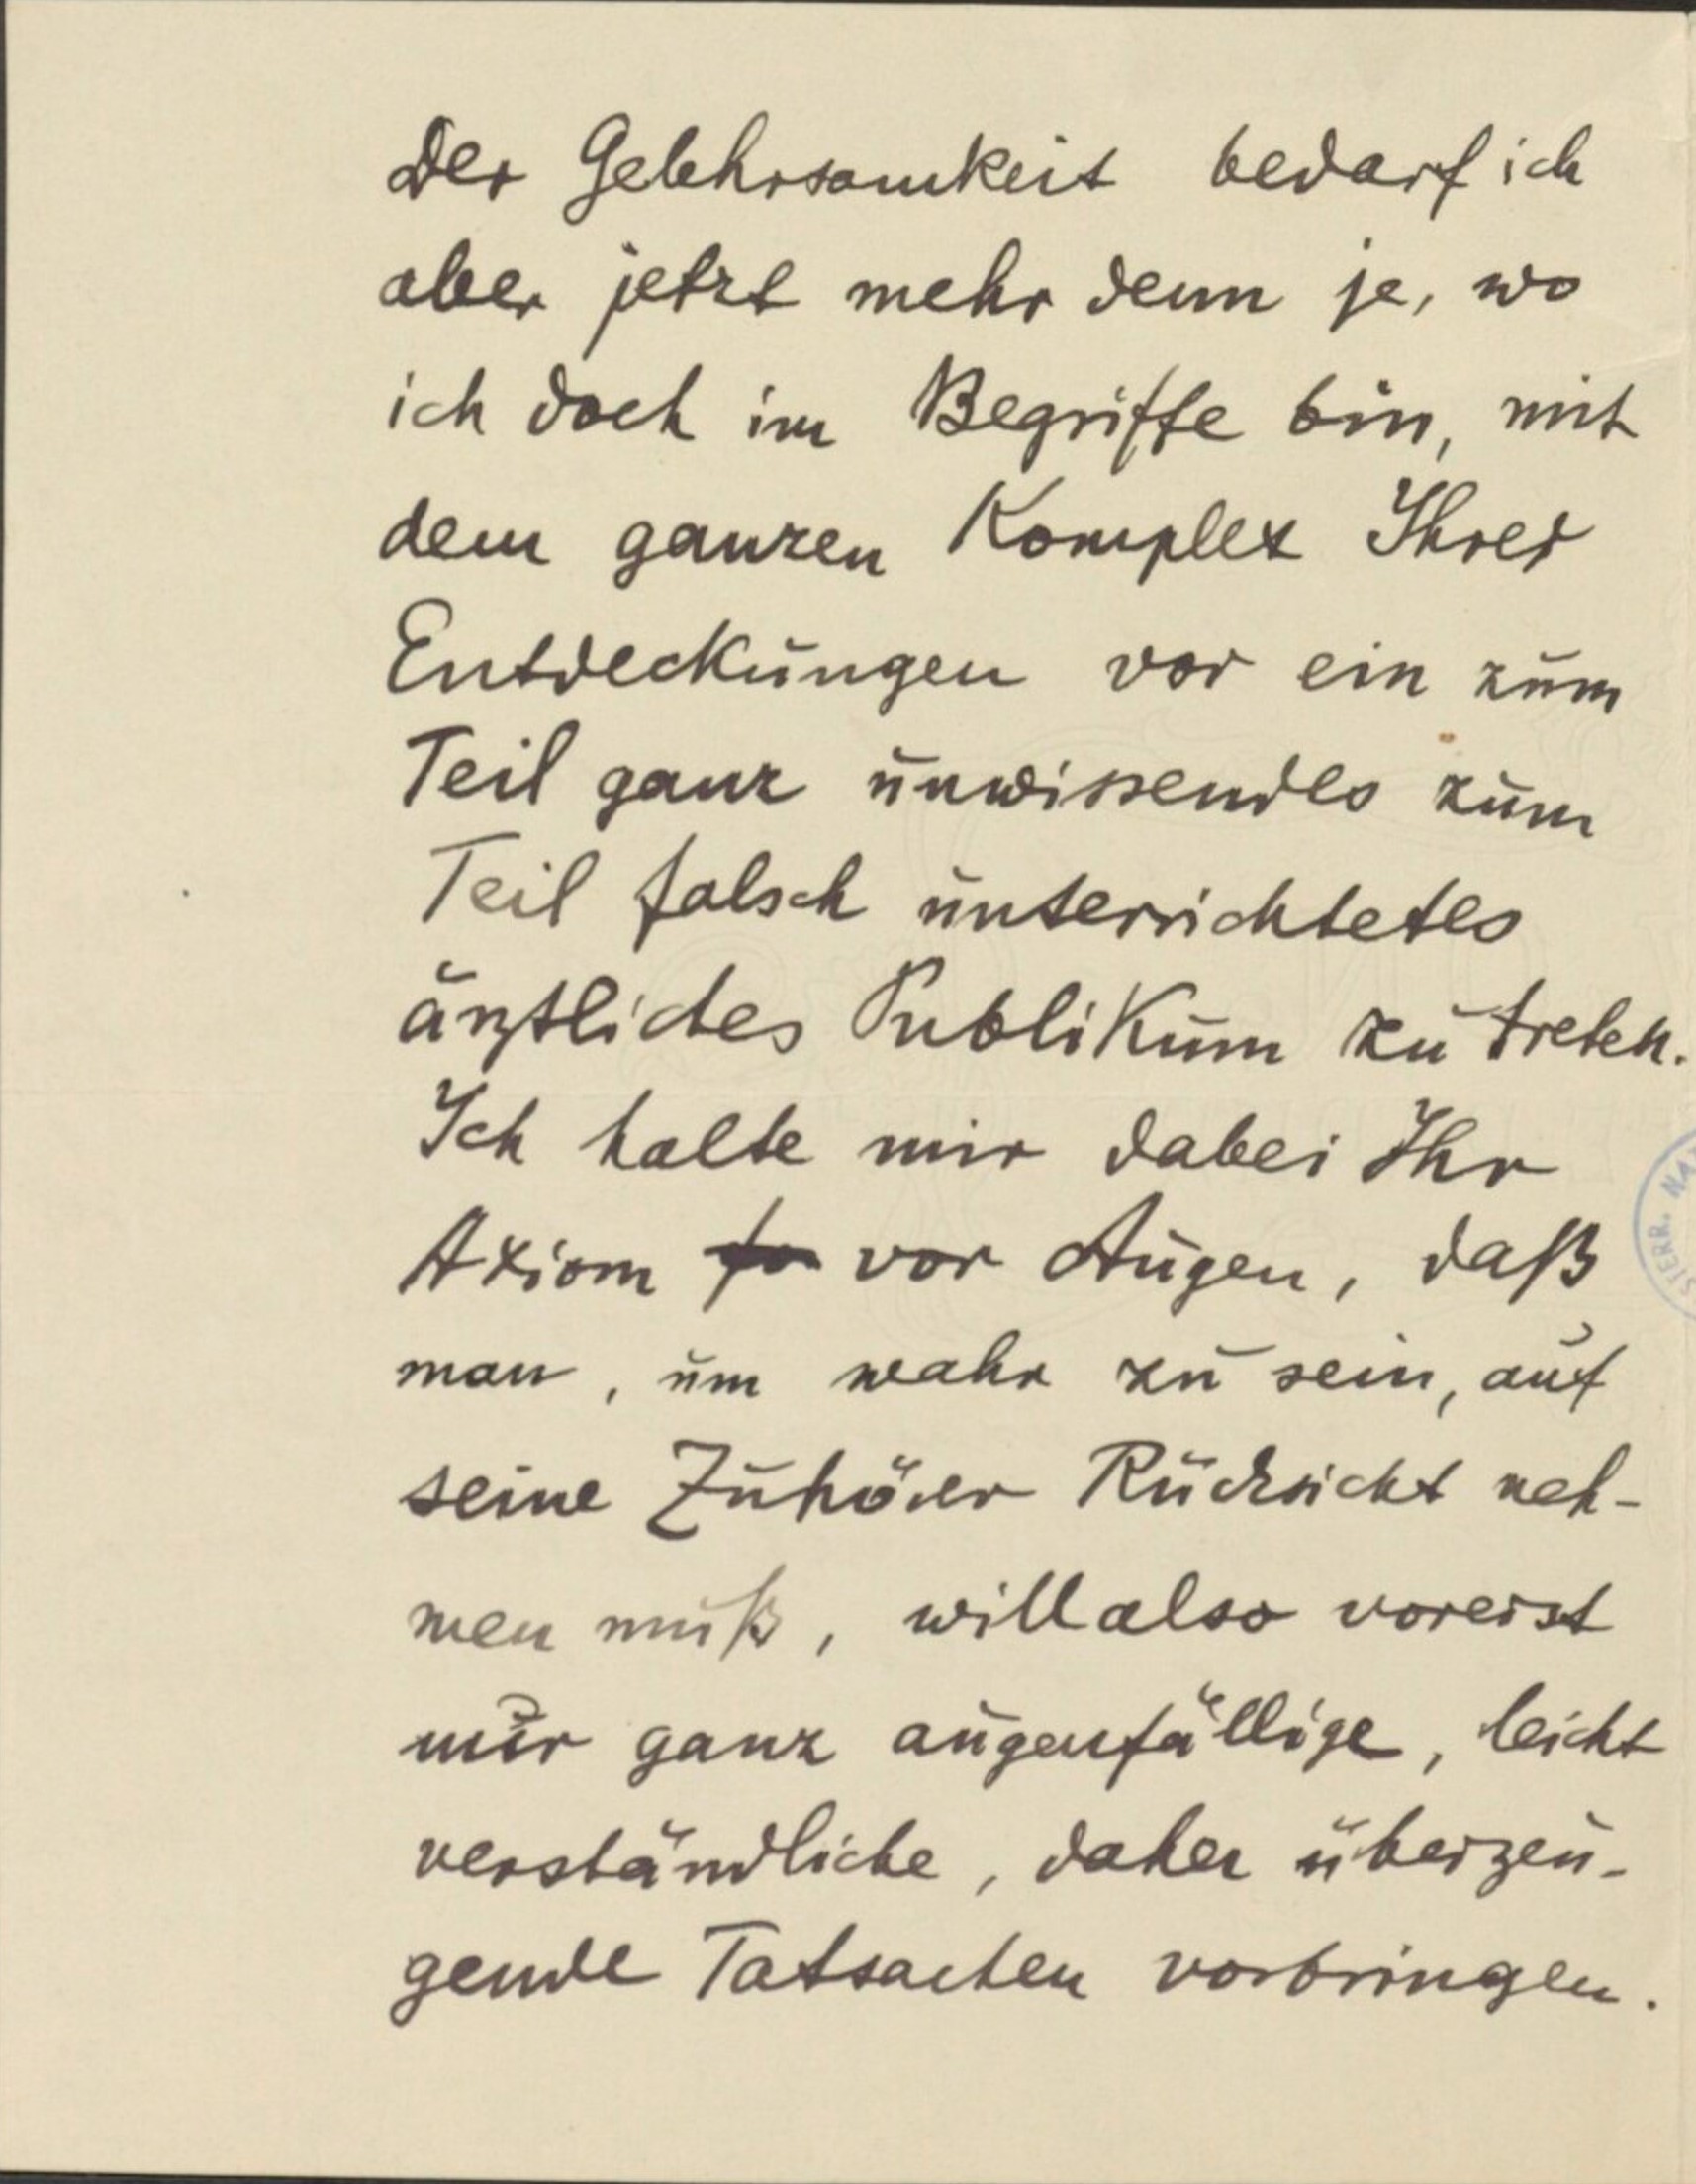 Der Gelehrsamkeit bedarf ich
aber jetzt mehr denn je, wo
ich doch im Begriffe bin, mit
dem ganzen Komplex Ihrer
Entdeckungen vor ein zum
Teil ganz unwissendes zum
Teil falsch unterrichtetes
ärztliches Publikum zu treten.
Ich halte mir dabei Ihr
Axiom vor Augen, daß
man, um wahr zu sein, auf
seine Zuhörer Rücksicht neh-
men muß, will also vorerst
nur ganz augenfällige, leicht
verständliche, daher überzeu-
gende Tatsachen vorbringen.